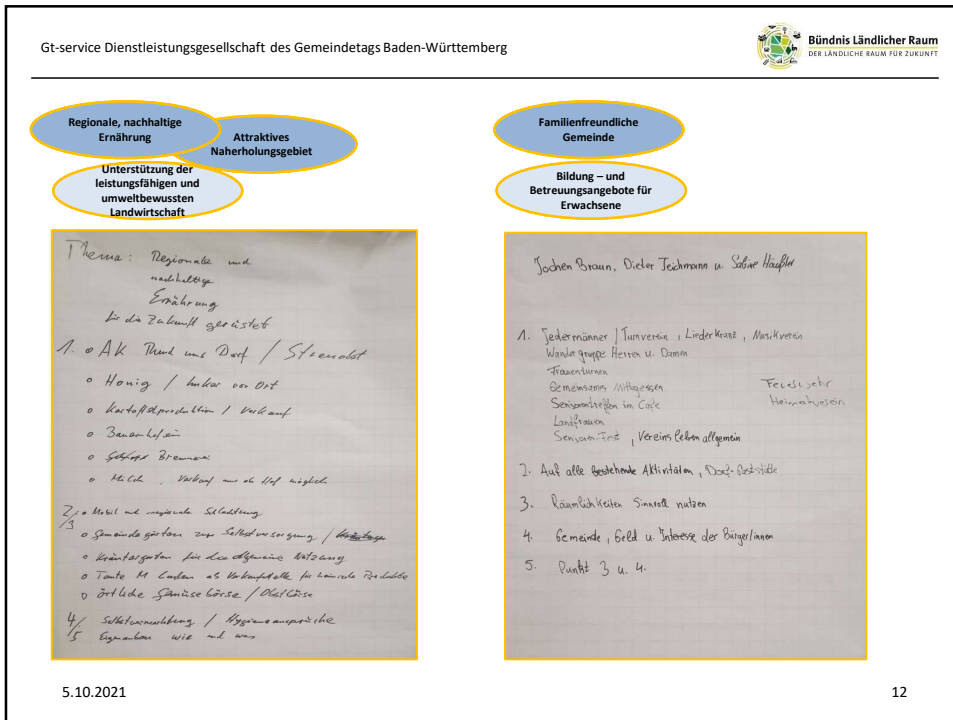 Gt-service Dienstleistungsgesellschaft des Gemeindetags Baden-Württemberg
Bündnis Ländlicher Raum
DER LÄNDLICHE RAUM FÜR ZUKUNFT
Regionale, nachhaltige
Ernährung
Attraktives
Naherholungsgebiet
Unterstützung der
leistungsfähigen und
umweltbewussten
Landwirtschaft
Familienfreundliche
Gemeinde
Bildung – und
Betreuungsangebote für
Erwachsene
Thema: Regionale und
nachhaltige
Ernährung
für die Zukunft gerüstet
1. o AK Rund ums Dorf / Streuobst
o Honig / Imker vor Ort
o Kartoffelproduktion / Verkauf
o
o Brennerei
o Milch, Verkauf aus ab Hof möglich
2/3 o Mobil und regionale Schlachtung
o Gemeindegärten zur Selbstversorgung /
o Kräutergarten für die allgemeine Nutzung
o Tante M Laden als Verkaufstelle für heimische Produkte
o örtliche Gemüsebörse / Obstbörse
4/ Selbstvermarktung / Hygieneansprüche
5 Eigenanbau wie und was
Jochen Braun, Dieter Teichmann u. Sabine
1. Jedermänner / Turnverein, Liederkranz, Musikverein
Wandergruppe Herren u. Damen
Frauenturnen
Gemeinsames Mittagessen
Feuerwehr
Seniorentreffen im Cafe
Heimatverein
Landfrauen
Senioren-Fest, Vereinsleben allgemein
2. Auf alle bestehende Aktivitäten, Dorf-Gaststätte
3. Räumlichkeiten Sinnvoll nutzen
4. Gemeinde, Geld u. Interesse der Bürger/innen
5. Punkt 3 u. 4.
5.10.2021
12